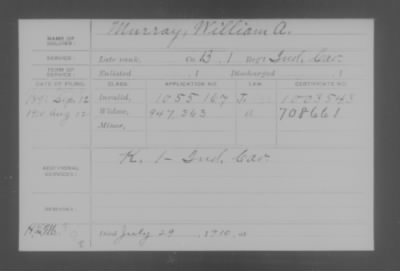 NAME OF SOLDIER: Murray, William A.
SERVICE: Late rank, Co. B, 1 Reg't Ind. Cav.
TERM OF SERVICE: Enlisted , 1 Discharged , 1
DATE OF FILING. CLASS. APPLICATION NO. LAW. CERTIFICATE NO.
Sep. 12 Invalid, 1055167 1003543
1910 Aug 12 Widow, 947363 708661
Minor,
ADDITIONAL SERVICES: K. 1 Ind. Cav.
REMARKS:
Died July 29, 1910, at